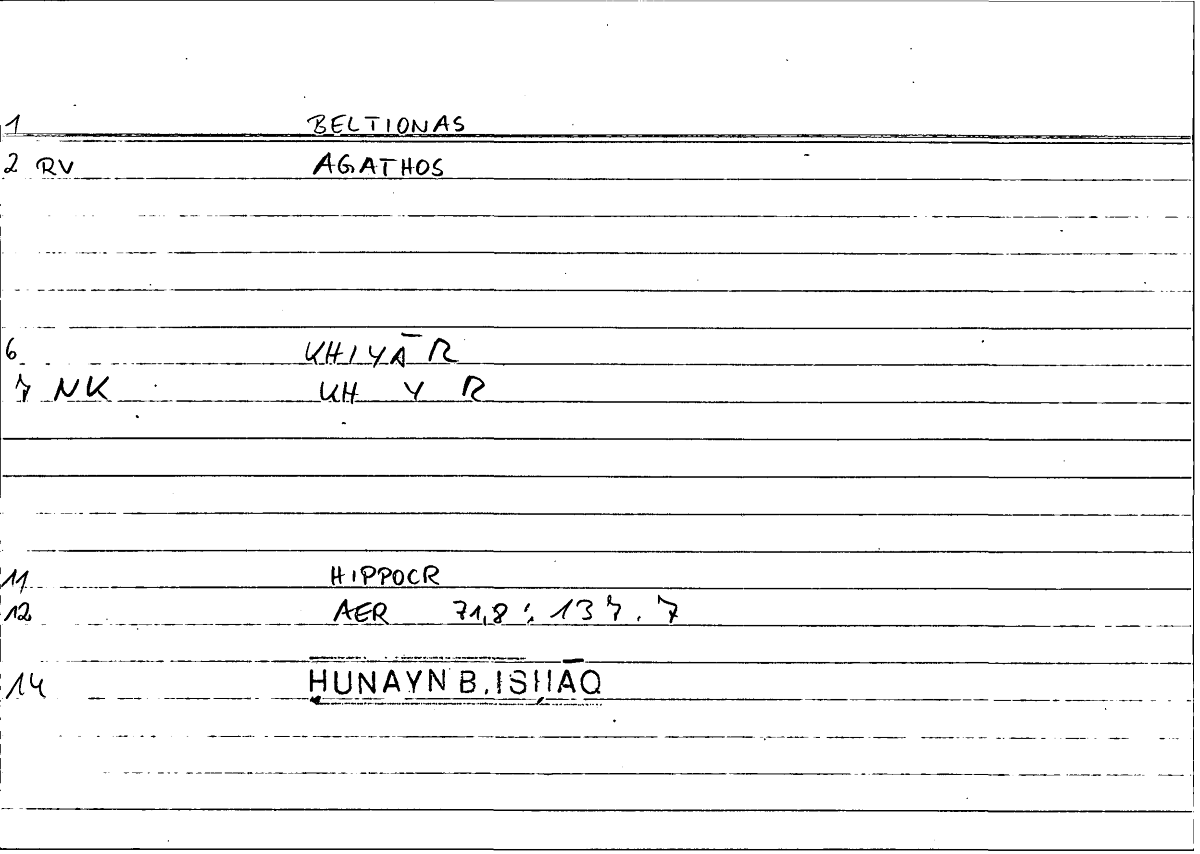 1 BELTIONAS
2 RV AGATHOS
6 KHIYĀR
7 NK KH Y R
11 HIPPOCR
12 AER 71,8 : 137.7
14 ḤUNAYN B. ISḤĀQ